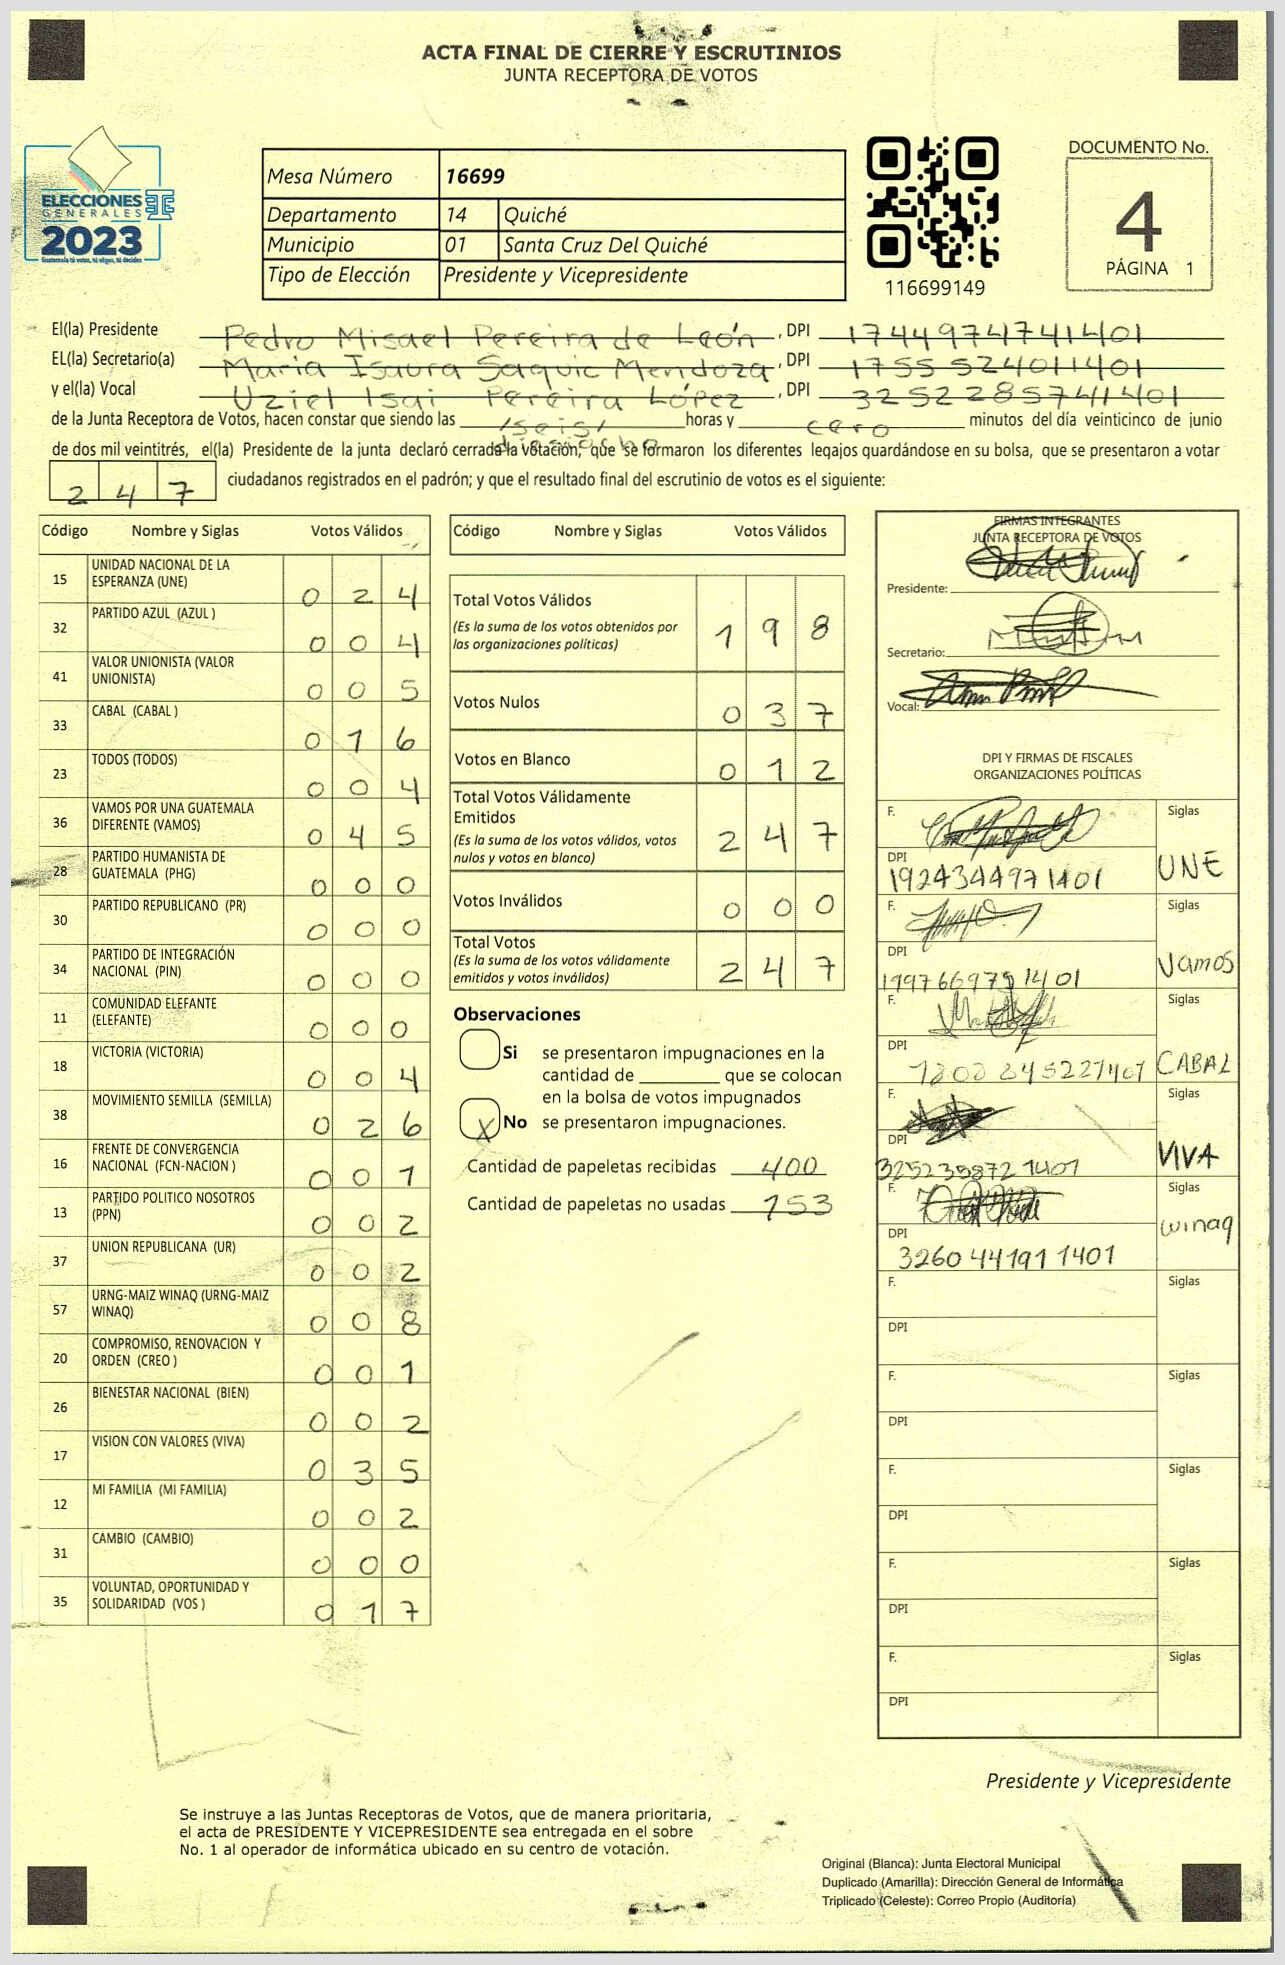 ACTA FINAL DE CIERRE Y ESCRUTINIOS
JUNTA RECEPTORA DE VOTOS
ELECCIONES
GENERALES
2023
Guatemala tú votas, tú eliges, tú decides
Mesa Número 16699
Departamento 14 Quiché
Municipio 01 Santa Cruz Del Quiché
Tipo de Elección Presidente y Vicepresidente
116699149
DOCUMENTO No.
4
PÁGINA 1
El(la) Presidente Pedro Misael Pereira de León, DPI 1744974741401
EL(la) Secretario(a) Maria Isaura Saquic Mendoza, DPI 1755524011401
y el(la) Vocal Uziel Isai Pereira López, DPI 3252285741401
de la Junta Receptora de Votos, hacen constar que siendo las /seis/ horas y cero minutos del día veinticinco de junio
dieciocho
de dos mil veintitrés, el(la) Presidente de la junta declaró cerrada la votación, que se formaron los diferentes legajos guardándose en su bolsa, que se presentaron a votar
247 ciudadanos registrados en el padrón; y que el resultado final del escrutinio de votos es el siguiente:
Código Nombre y Siglas Votos Válidos
15 UNIDAD NACIONAL DE LA ESPERANZA (UNE) 024
32 PARTIDO AZUL (AZUL ) 004
41 VALOR UNIONISTA (VALOR UNIONISTA) 005
33 CABAL (CABAL ) 016
23 TODOS (TODOS) 004
36 VAMOS POR UNA GUATEMALA DIFERENTE (VAMOS) 045
28 PARTIDO HUMANISTA DE GUATEMALA (PHG) 000
30 PARTIDO REPUBLICANO (PR) 000
34 PARTIDO DE INTEGRACIÓN NACIONAL (PIN) 000
11 COMUNIDAD ELEFANTE (ELEFANTE) 000
18 VICTORIA (VICTORIA) 004
38 MOVIMIENTO SEMILLA (SEMILLA) 026
16 FRENTE DE CONVERGENCIA NACIONAL (FCN-NACION ) 001
13 PARTIDO POLITICO NOSOTROS (PPN) 002
37 UNION REPUBLICANA (UR) 002
57 URNG-MAIZ WINAQ (URNG-MAIZ WINAQ) 008
20 COMPROMISO, RENOVACION Y ORDEN (CREO ) 001
26 BIENESTAR NACIONAL (BIEN) 002
17 VISION CON VALORES (VIVA) 035
12 MI FAMILIA (MI FAMILIA) 002
31 CAMBIO (CAMBIO) 000
35 VOLUNTAD, OPORTUNIDAD Y SOLIDARIDAD (VOS ) 017
Código Nombre y Siglas Votos Válidos
Total Votos Válidos 198
(Es la suma de los votos obtenidos por
las organizaciones políticas)
Votos Nulos 037
Votos en Blanco 012
Total Votos Válidamente
Emitidos 247
(Es la suma de los votos válidos, votos
nulos y votos en blanco)
Votos Inválidos 000
Total Votos 247
(Es la suma de los votos válidamente
emitidos y votos inválidos)
Observaciones
Si se presentaron impugnaciones en la
cantidad de ________ que se colocan
en la bolsa de votos impugnados
X No se presentaron impugnaciones.
Cantidad de papeletas recibidas 400
Cantidad de papeletas no usadas 153
FIRMAS INTEGRANTES
JUNTA RECEPTORA DE VOTOS
Presidente:
Secretario:
Vocal:
DPI Y FIRMAS DE FISCALES
ORGANIZACIONES POLÍTICAS
F. Siglas
DPI 1924344971401 UNE
F. Siglas
DPI Vamos
F. Siglas
DPI CABAL
F. Siglas
DPI 3252358721401 VIVA
F. Siglas
DPI 3260441911401 winaq
F. Siglas
DPI
F. Siglas
DPI
F. Siglas
DPI
F. Siglas
DPI
F. Siglas
DPI
Presidente y Vicepresidente
Se instruye a las Juntas Receptoras de Votos, que de manera prioritaria,
el acta de PRESIDENTE Y VICEPRESIDENTE sea entregada en el sobre
No. 1 al operador de informática ubicado en su centro de votación.
Original (Blanca): Junta Electoral Municipal
Duplicado (Amarilla): Dirección General de Informática
Triplicado (Celeste): Correo Propio (Auditoría)